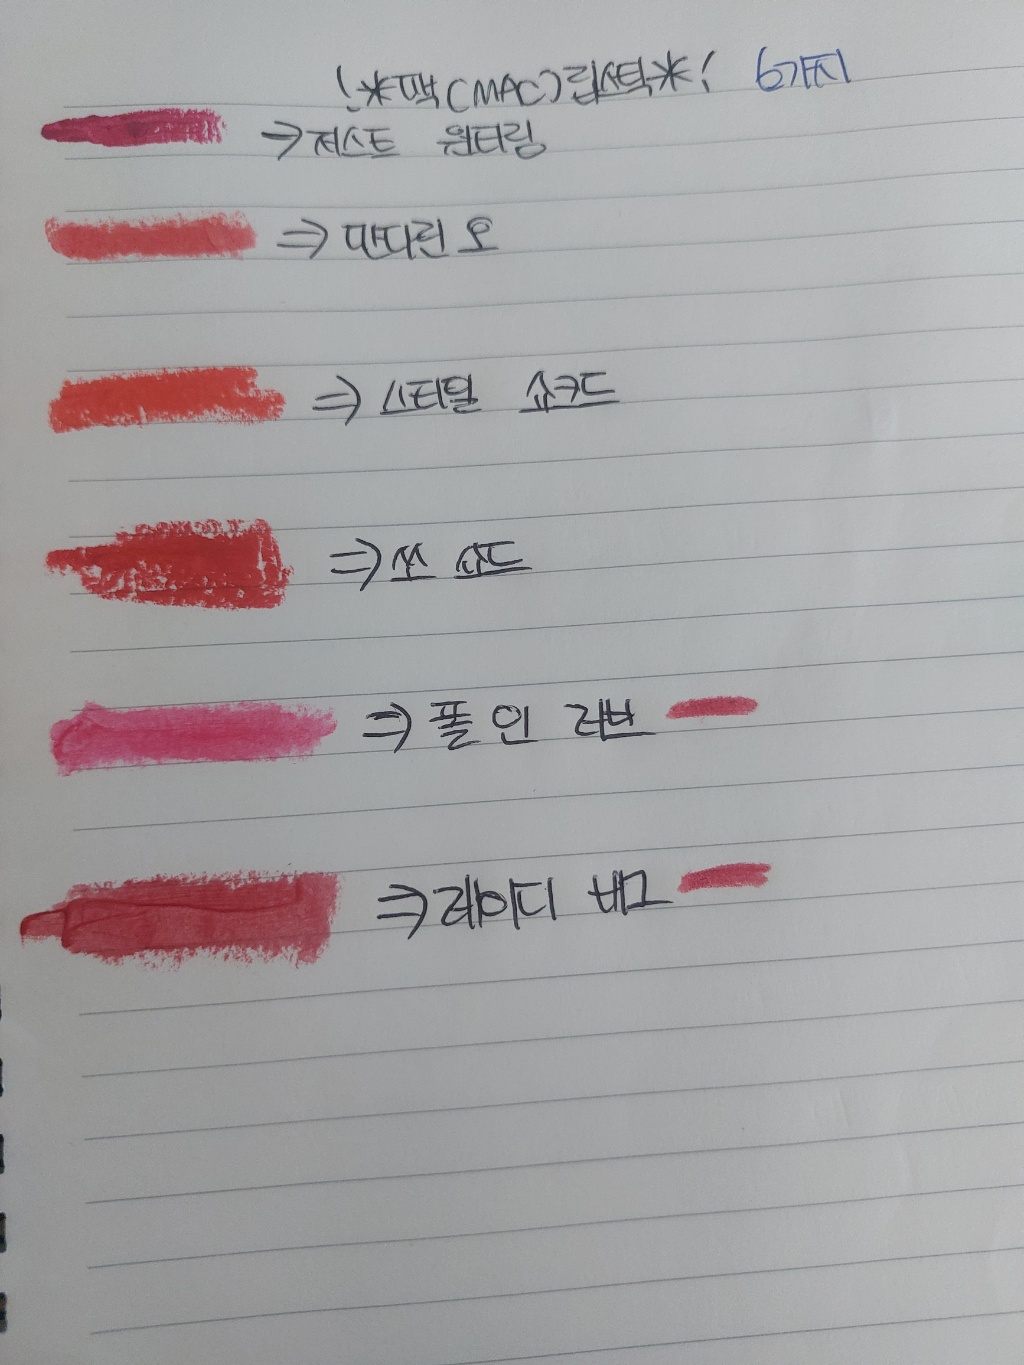 !*맥(MAC)립스틱*! 6가지
⇒저스트 원터링
⇒만다린 오
⇒스티일 쇼키드
⇒쏘 쇼드
⇒폴 인 러브
⇒레이디 버그